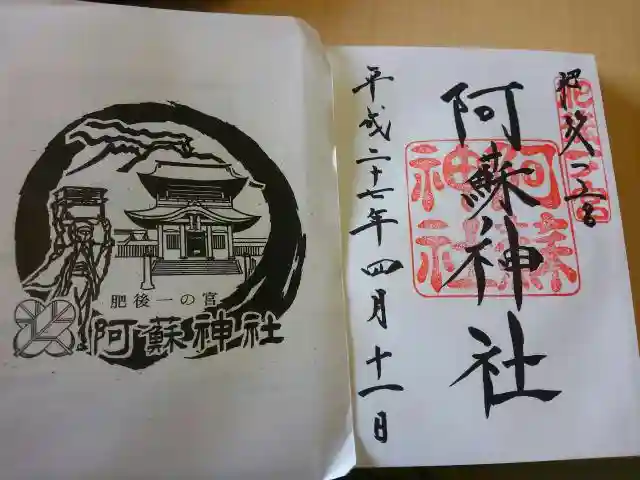 肥後一の宮
阿蘇神社
肥後一之宮
阿蘇神社
平成二十七年四月十一日
肥後一宮
阿蘇
神社